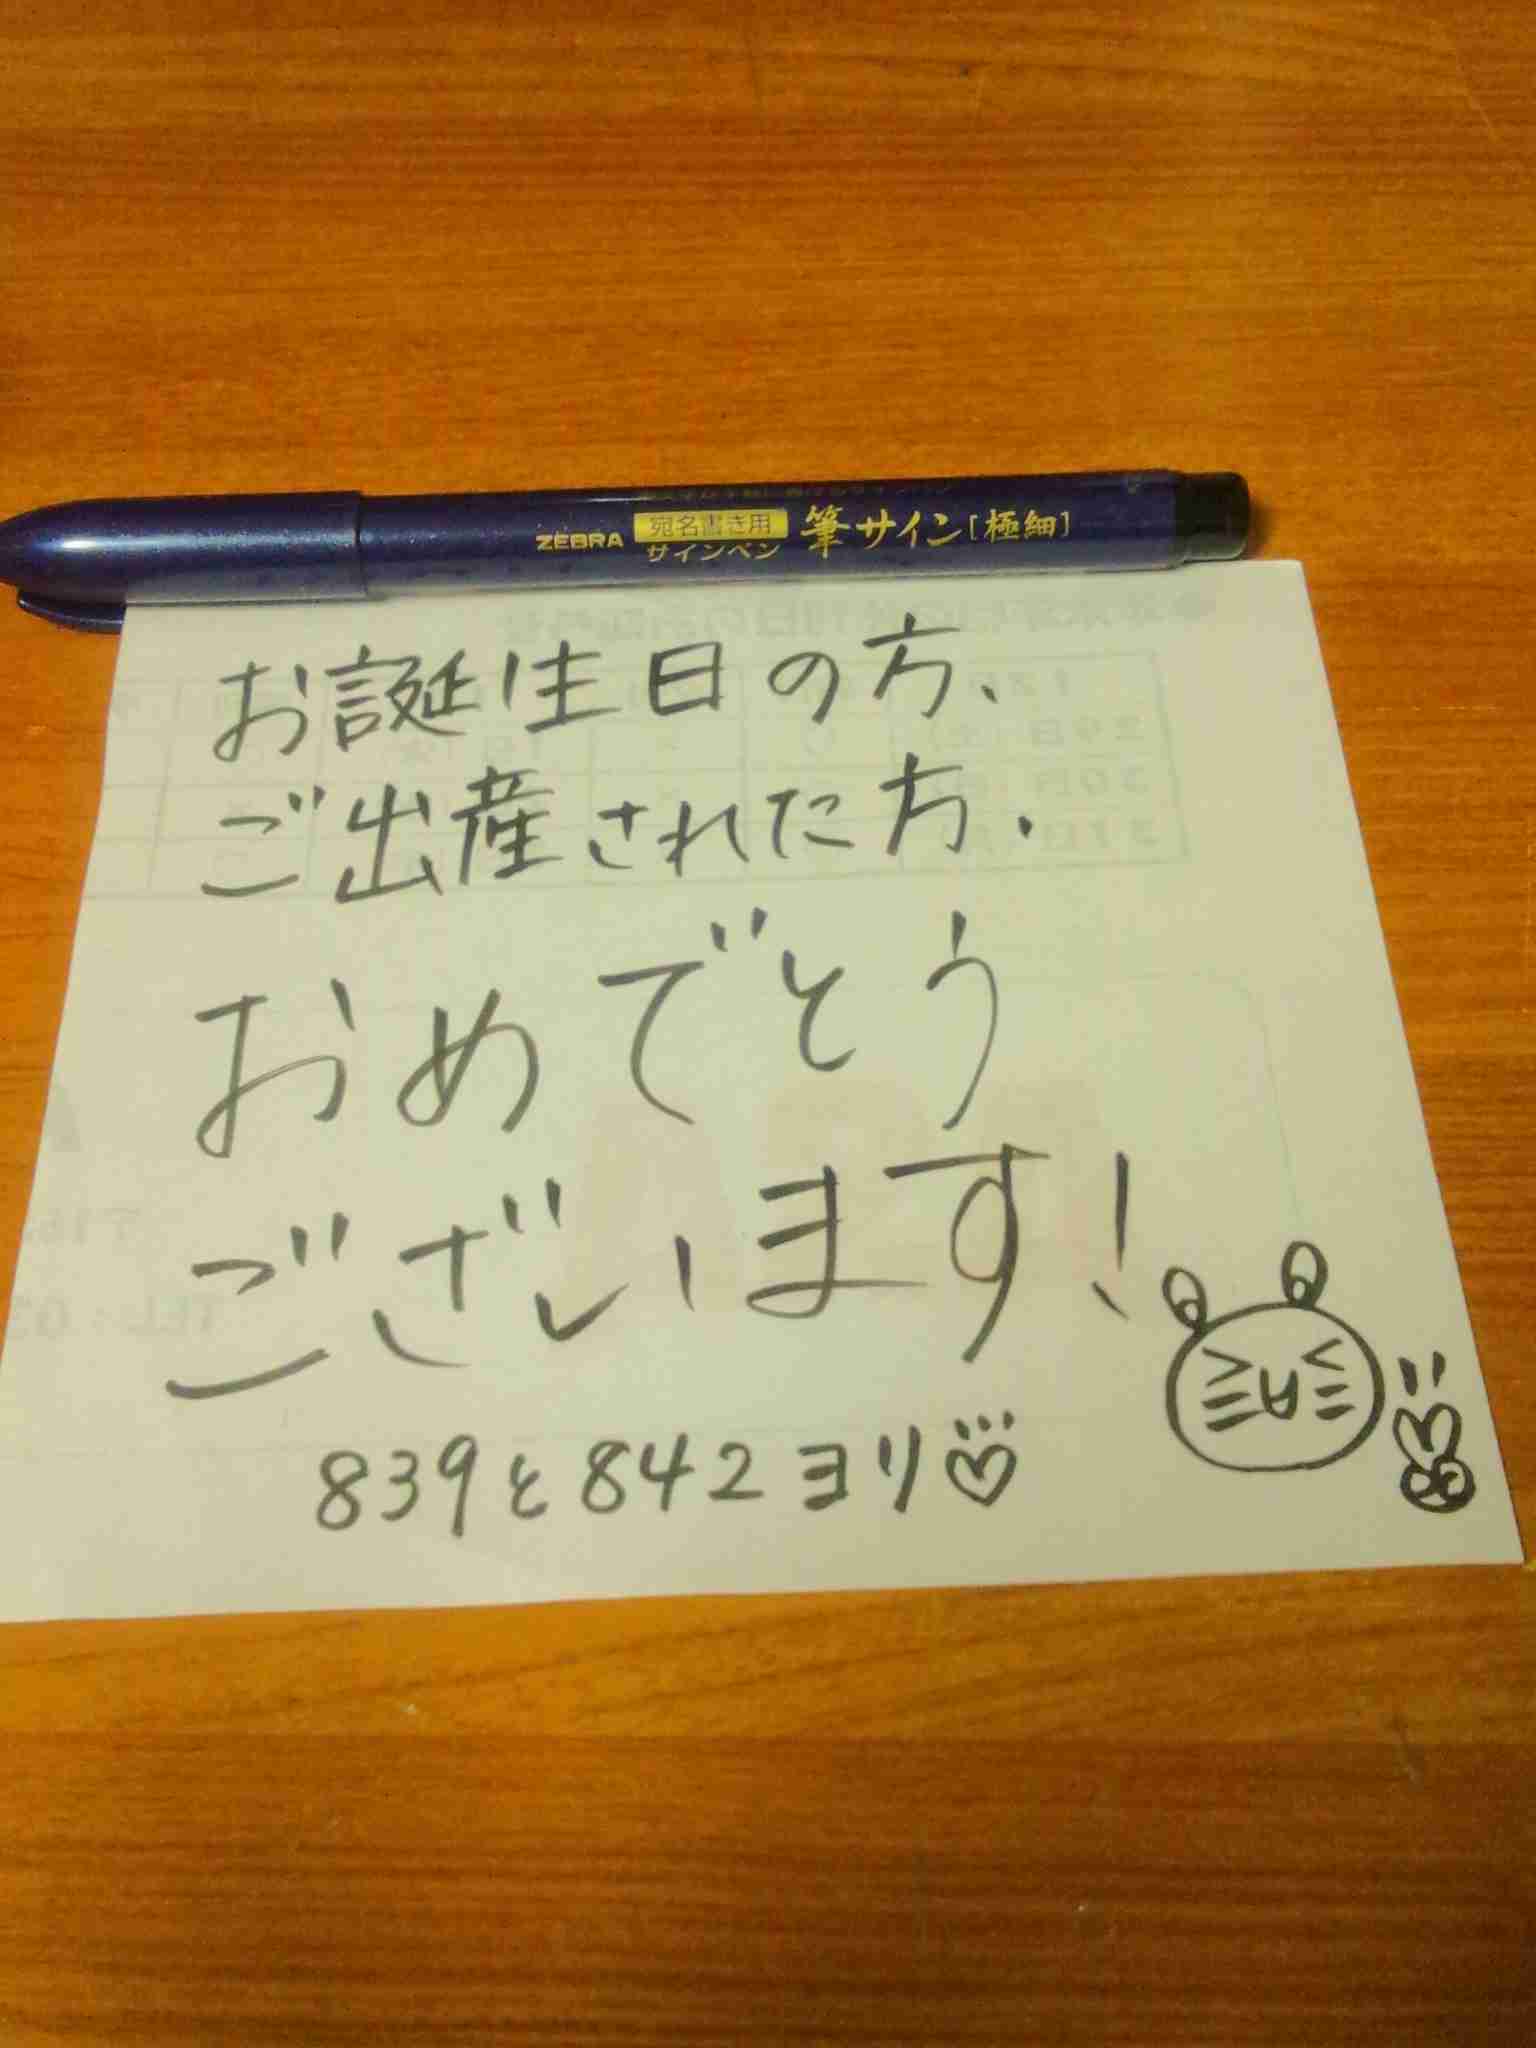 ZEBRA 宛名書き用 サインペン 筆サイン[極細]
お誕生日の方、
ご出産された方、
おめでとう
ございます！
839と842ヨリ